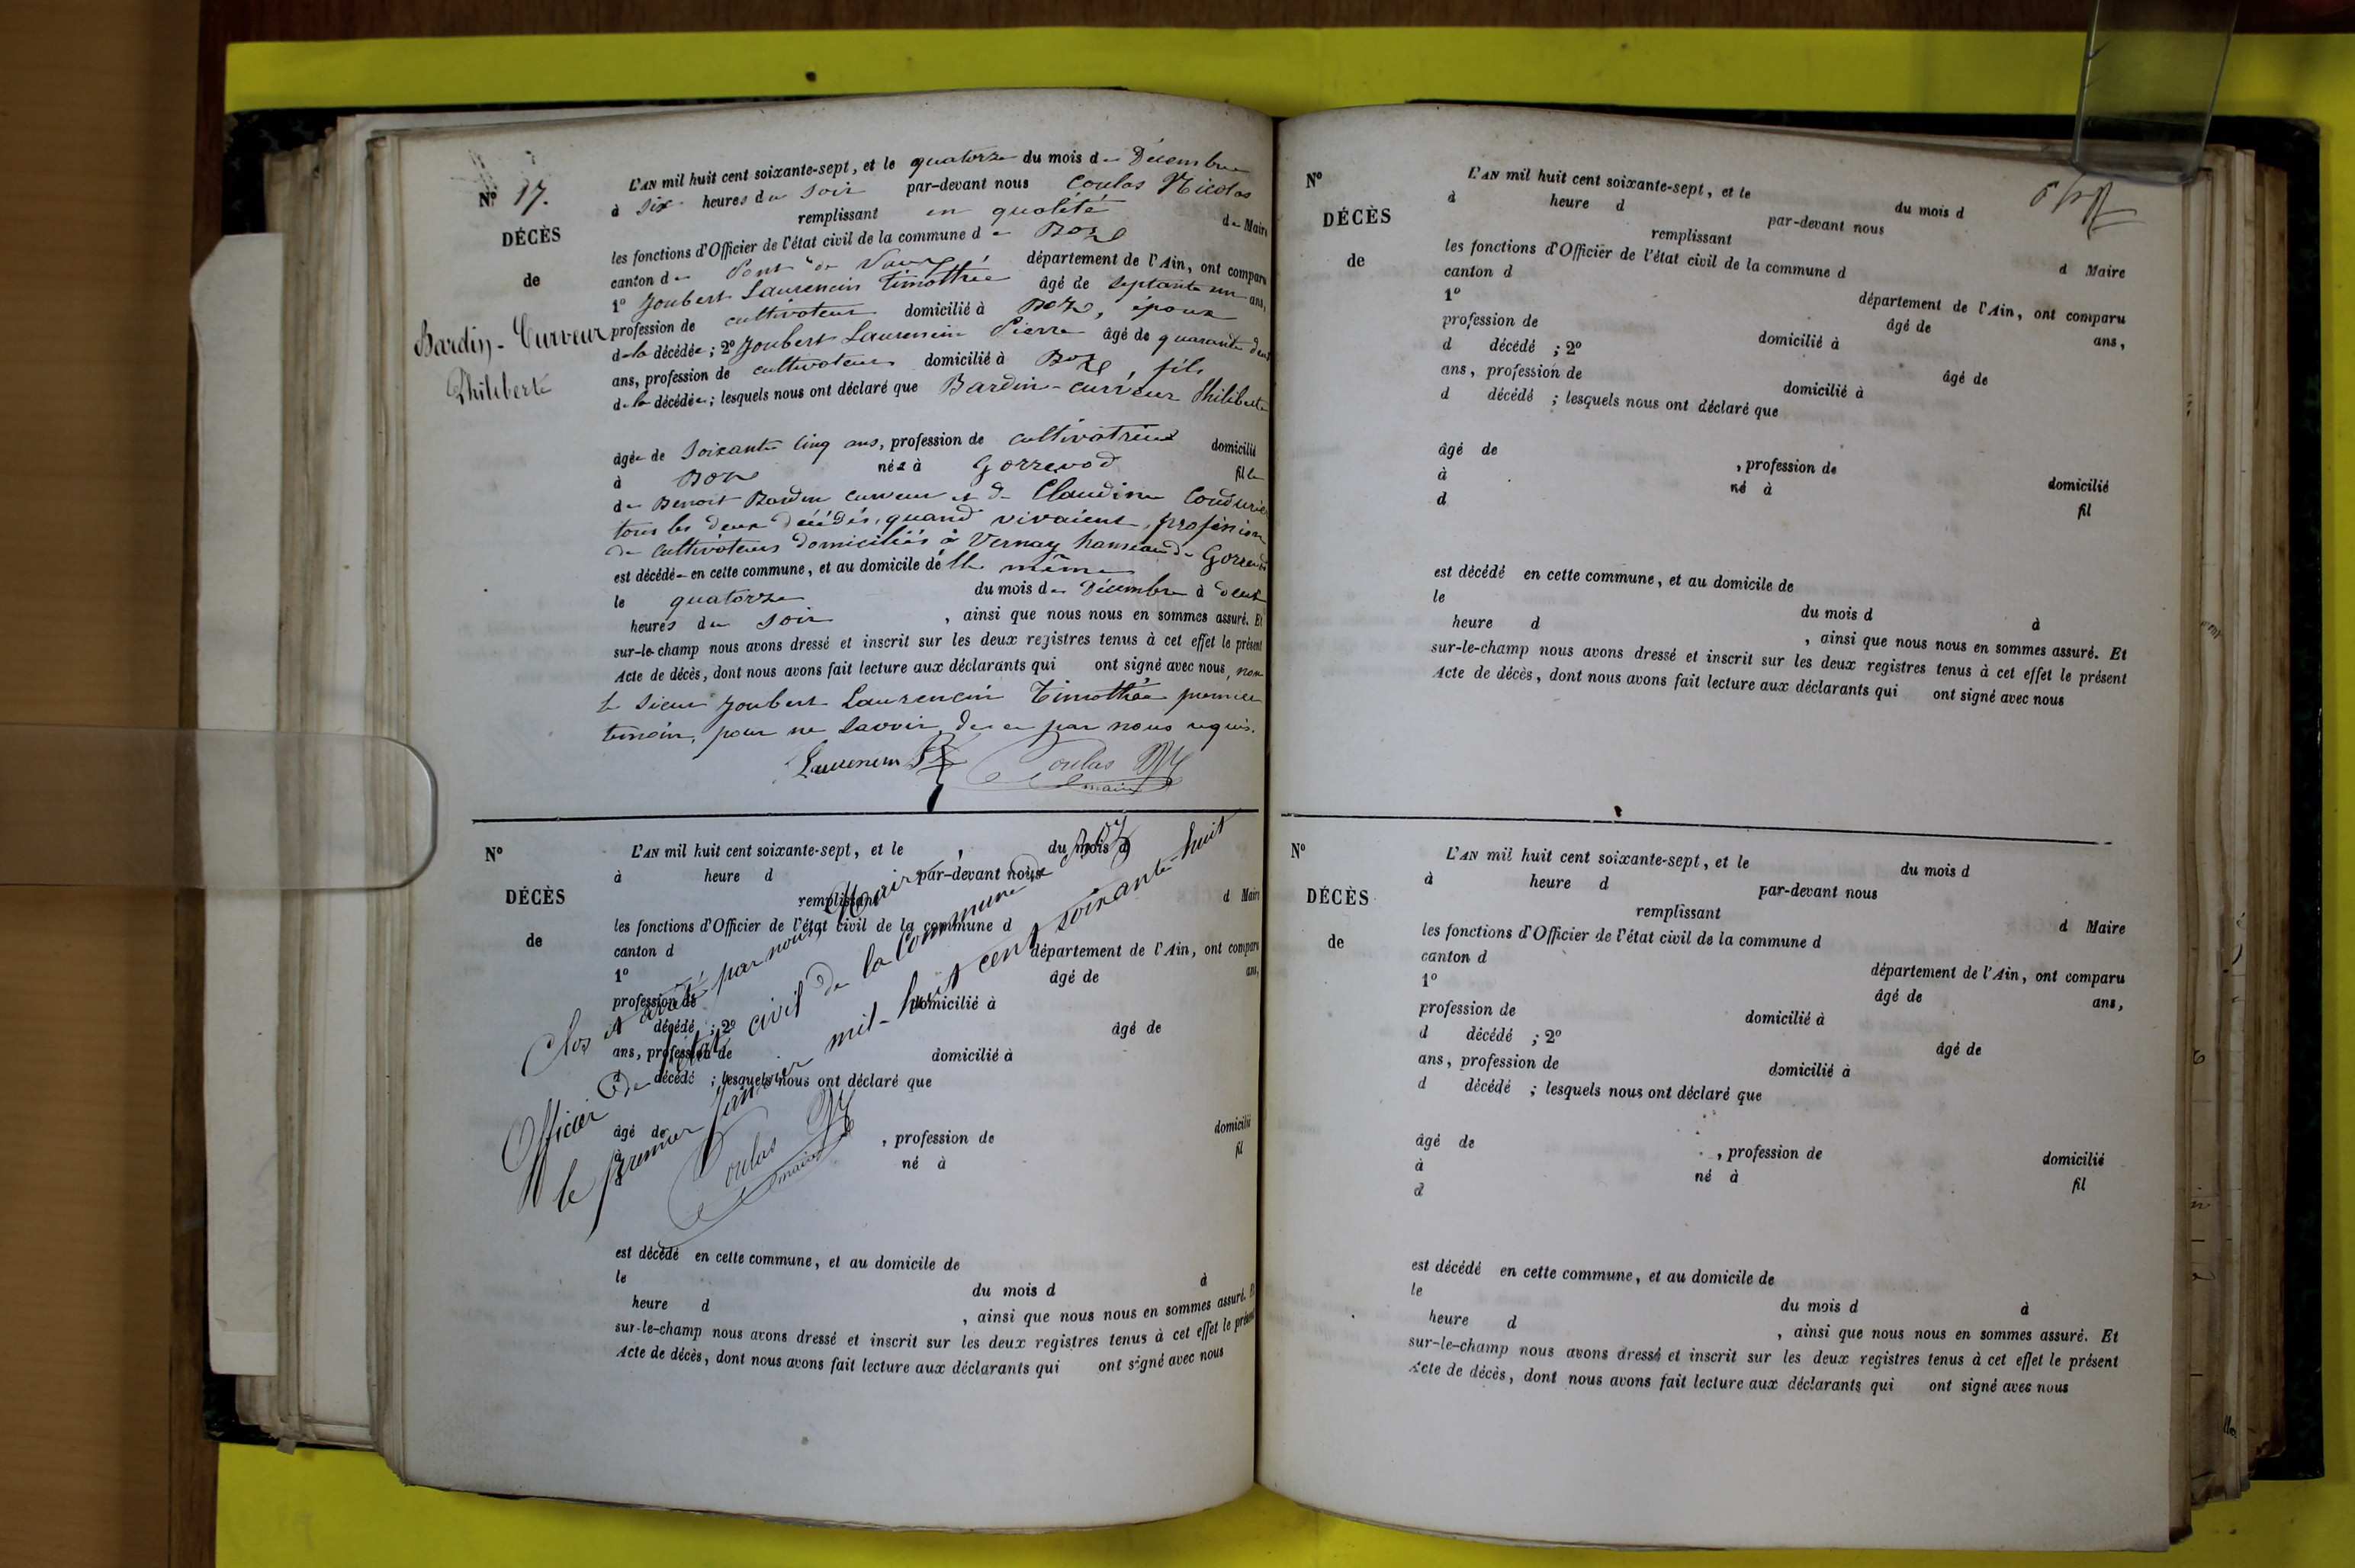 Nº 17.
DÉCÈS
de
Bardin-Curveur
Philiberte
L'AN mil huit cent soixante-sept, et le quatorze du mois de Décembre
à six heures du soir par-devant nous Coulas Nicolas
remplissant en qualité de Maire
les fonctions d'Officier de l'état civil de la commune de Bozé
canton de Pont de Vaux, département de l'Ain, ont comparu
1º Joubert Laurencin Timothée âgé de septante un ans,
profession de cultivateur domicilié à Bozé, époux
de la décédée; 2º Joubert Laurencin Pierre âgé de quarante deux
ans, profession de cultivateur domicilié à Bozé, fils
de la décédée; lesquels nous ont déclaré que Bardin-curveur Philiberte
âgée de soixante cinq ans, profession de cultivatrice domicilié
à Bozé née à Gorrevod fille
de Benoit Bardin curveur et de Claudine
tous les deux décédés, quand vivaient, profession
de cultivateurs domiciliés à Vernay hameau de Gorrevod
est décédée en cette commune, et au domicile d'elle même
le quatorze du mois de Décembre à deux
heures du soir, ainsi que nous nous en sommes assuré. Et
sur-le-champ nous avons dressé et inscrit sur les deux registres tenus à cet effet le présent
Acte de décès, dont nous avons fait lecture aux déclarants qui ont signé avec nous, non
le sieur Joubert Laurencin Timothée premier
témoin, pour ne savoir de ce par nous requis.
Laurencin P Coulas N
maire
Nº
DÉCÈS
de
L'AN mil huit cent soixante-sept, et le du mois d
à heure d par-devant nous
remplissant d Maire
les fonctions d'Officier de l'état civil de la commune d
canton d département de l'Ain, ont comparu
1º âgé de ans,
profession de domicilié à
d décédé ; 2º âgé de
ans, profession de domicilié à
d décédé ; lesquels nous ont déclaré que
âgé de , profession de domicilié
à né à fil
d
est décédé en cette commune, et au domicile de
le du mois d à
heure d , ainsi que nous nous en sommes assuré. Et
sur-le-champ nous avons dressé et inscrit sur les deux registres tenus à cet effet le présent
Acte de décès, dont nous avons fait lecture aux déclarants qui ont signé avec nous
Clos et arrêté par nous, Maire
Officier de l'état civil de la Commune de Bozé
le premier Janvier mil-huit cent soixante-huit
Coulas N
maire
Nº
DÉCÈS
de
L'AN mil huit cent soixante-sept, et le du mois d
à heure d par-devant nous
remplissant d Maire
les fonctions d'Officier de l'état civil de la commune d
canton d département de l'Ain, ont comparu
1º âgé de ans,
profession de domicilié à
d décédé ; 2º âgé de
ans, profession de domicilié à
d décédé ; lesquels nous ont déclaré que
âgé de , profession de domicilié
à né à fil
d
est décédé en cette commune, et au domicile de
le du mois d à
heure d , ainsi que nous nous en sommes assuré. Et
sur-le-champ nous avons dressé et inscrit sur les deux registres tenus à cet effet le présent
Acte de décès, dont nous avons fait lecture aux déclarants qui ont signé avec nous
Nº
DÉCÈS
de
L'AN mil huit cent soixante-sept, et le du mois d
à heure d par-devant nous
remplissant d Maire
les fonctions d'Officier de l'état civil de la commune d
canton d département de l'Ain, ont comparu
1º âgé de ans,
profession de domicilié à
d décédé ; 2º âgé de
ans, profession de domicilié à
d décédé ; lesquels nous ont déclaré que
âgé de , profession de domicilié
à né à fil
d
est décédé en cette commune, et au domicile de
le du mois d à
heure d , ainsi que nous nous en sommes assuré. Et
sur-le-champ nous avons dressé et inscrit sur les deux registres tenus à cet effet le présent
Acte de décès, dont nous avons fait lecture aux déclarants qui ont signé avec nous